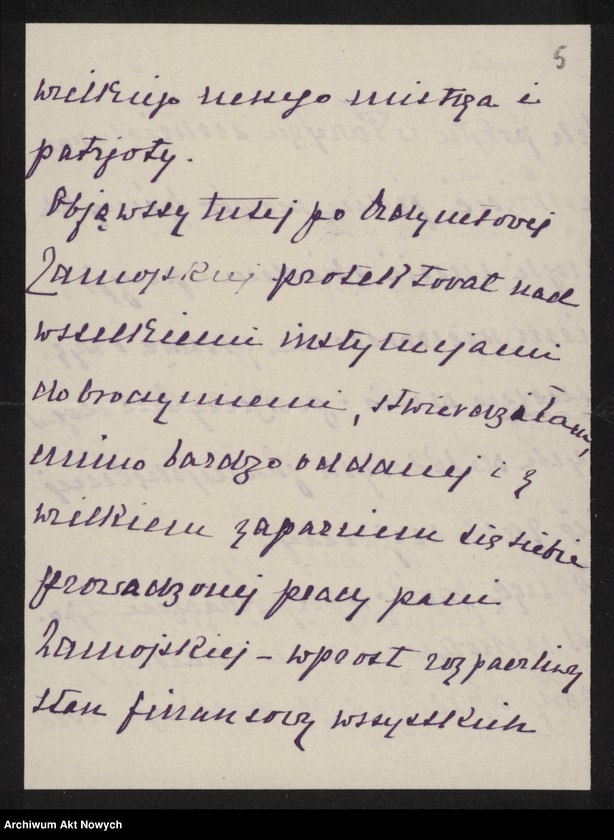 5
wielkiego naszego mistrza i
patrjoty.
Objąwszy tutej po Ordynatowej
Zamojskiej protektorat nad
wszelkiemi instytucjami
dobroczynnemi, stwierdziłam,
mimo bardzo oddanej i z
wielkiem zaparciem się siebie
prowadzonej pracy pani
Zamojskiej – wprost rozpaczliwy
stan finansowy wszystkich
Archiwum Akt Nowych